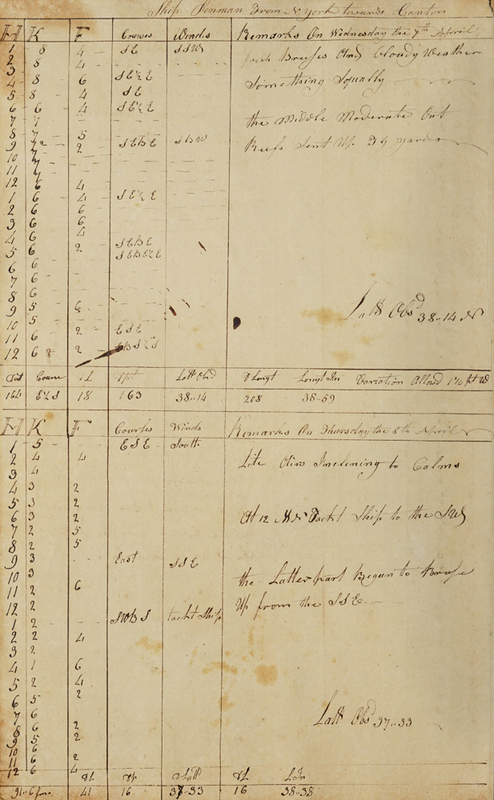 Ship Penman From N York towards Canton
H K F Courses Winds Remarks On Wednesday the 7th April
1 8 4 S E SSW fresh Breeses And Cloudy Weather
2 8 4
3 8 S E ½ E Something Squally
4 8 6
5 8 4 S E
6 6 4 S E ½ E
7 7 the Middle Moderate Out
8 7 5
9 7 2 S E B E S B W Reefs Sent Up yards
10 7
11 7
12 6 4
1 6 4 S E ½ E
2 6 6
3 6 6
4 6 4
5 6 2 S E B E
6 6 S E B E ½ E
7 6
8 6
9 5 6 Latt Obsd 38-14 N
10 5
11 6 2 E S E
12 6 2
Dist Course D Latt Dpt Latt Obsd D Longt Longt In Variation Allowd
164 18 163 38-14 208 38-59
H K F Courses Winds Remarks On Thursday the 8th April
1 5 E S E South
2 4 4 Lite Airs Inclening to Calms
3 4
4 3 2
5 3 2
6 3 2 At 12 M Tackt Ship to the SW
7 2 5
8 2 5
9 3 East S S E
10 3 the Latter part Began to Breese
11 2 6
12 2 Up from the S S E
1 2 SWBS tackt Ship
2 2 4
3 2
4 1 6
5 2 4
6 5 2
7 6
8 6 2 Latt Obsd 37-33
9 5 2
10 6
11 6 2
12 6 4
DL Dp D Latt DL L In
41 16 37-33 16 38-38